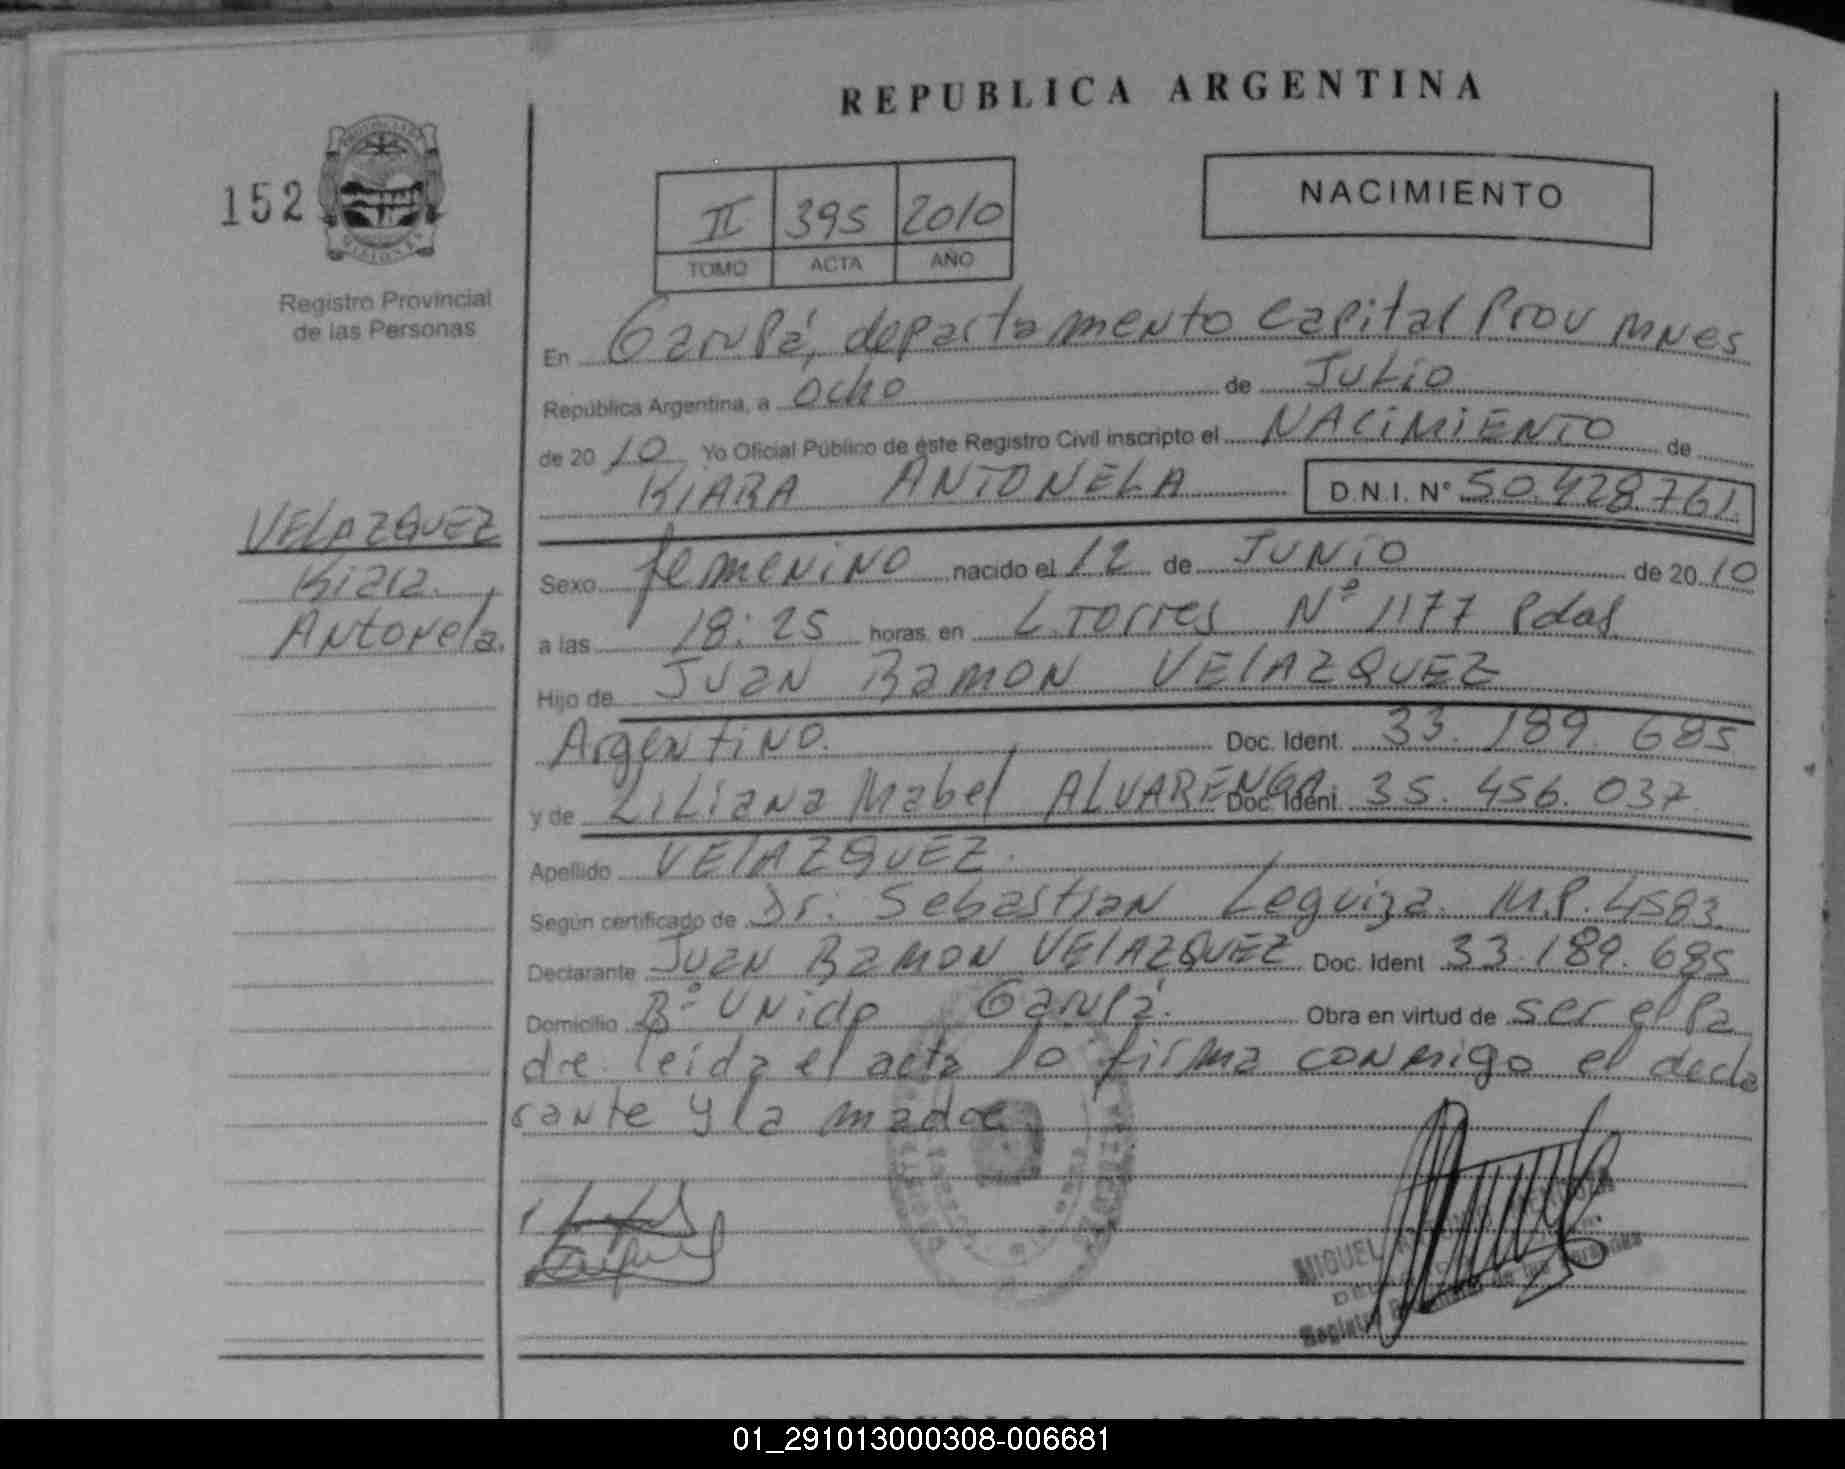 REPUBLICA ARGENTINA
152
NACIMIENTO
II 395 2010
TOMO ACTA AÑO
Registro Provincial
de las Personas
En Garupá, departamento Capital Prov Mnes
República Argentina, a ocho de Julio
de 2010 Yo Oficial Público de éste Registro Civil inscripto el NACIMIENTO de
KIARA ANTONELA D.N.I. Nº 50.428.761.
VELAZQUEZ
Kiara
Antonela.
Sexo femenino nacido el 12 de JUNIO de 2010
a las 18:25 horas, en L.Torres Nº 1177 Pdas
Hijo de Juan Ramon VELAZQUEZ
Argentino. Doc. Ident. 33.189.685
y de Liliana Mabel ALVARENGA Doc. Ident. 35.456.037
Apellido VELAZQUEZ.
Según certificado de Dr. Sebastian Leguiza. M.P. 4583.
Declarante Juan Ramon VELAZQUEZ Doc. Ident 33.189.685
Domicilio Bº Unido Garupá. Obra en virtud de ser el Pa
dre. leida el acta lo firma conmigo el decla
rante y la madre
MIGUEL
Registro de las Personas
01_291013000308-006681